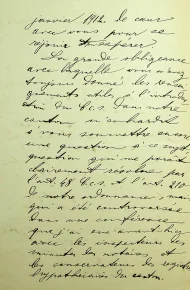 janvier 1912. de cœur
avec vous pour se
réjouir
La grande obligeance
avec laquelle vous m'avez
toujours donné les rensei
gnements utiles à l'introduc
tion du C.c.s. dans notre
canton m'enhardit
à vous soumettre encore
une question à ce sujet
question qui me paraît
clairement résolue par
l'art. 48 C.c.s. et l'art. 210
de notre ordonnance, mais
qui a été controversée
dans une conférence
que j'ai eue avant-hier
avec les inspecteurs des
minutes des notaires et
les conservateurs des registres
hypothécaires du canton.